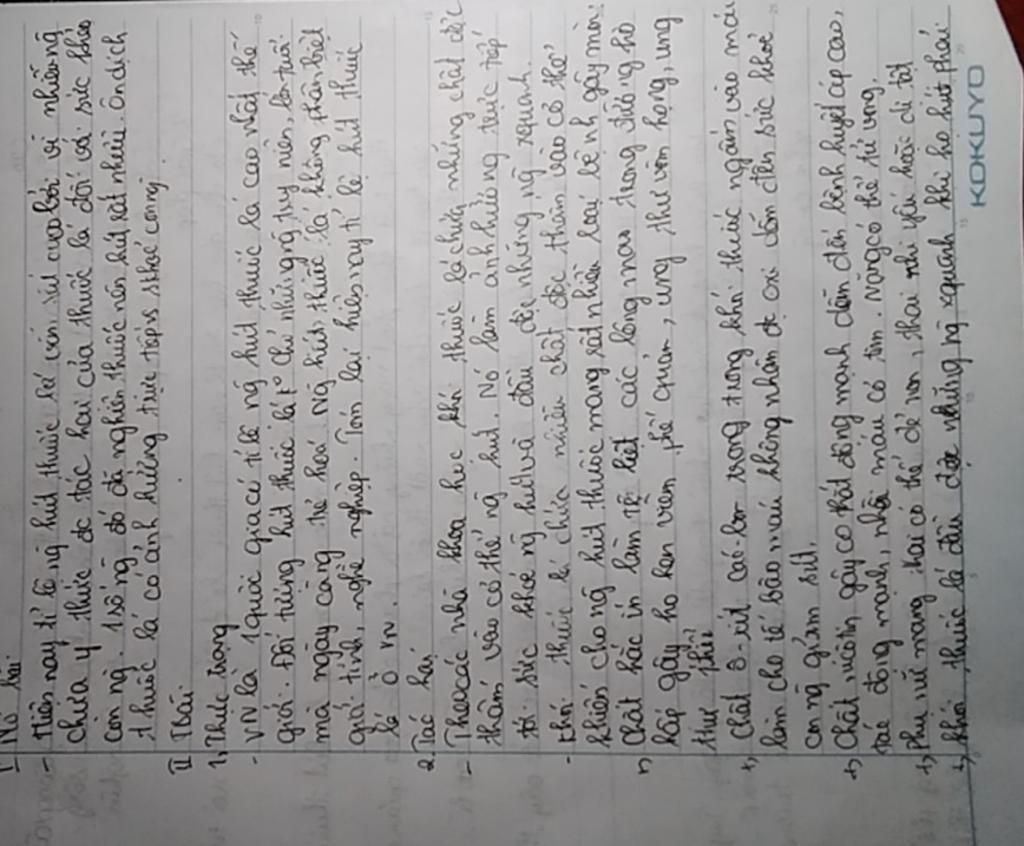 I Mở bài
- Hiện nay tỉ lệ ng hút thuốc lá còn rất cao bởi vì nhiều ng
chưa ý thức đc tác hại của thuốc lá đối với sức khỏe
con ng. 1 số ng đó đã nghiện thuốc nên hút rất nhiều. Ôn dịch
thuốc lá có ảnh hưởng trực tiếp
II TBài
1, Thực trạng
- VN là 1 quốc gia có tỉ lệ ng hút thuốc lá cao nhất thế
giới. Đối tượng hút thuốc lá ko chỉ những ng
mà ngày càng trẻ hoá. Ng hút thuốc lá không phân biệt
giới tính, nghề nghiệp. Tóm lại hiện nay tỉ lệ hút thuốc
lá ở VN.
2. Tác hại
- Theo các nhà khoa học khói thuốc lá chứa những chất độc
thấm vào cơ thể ng hút. Nó làm ảnh hưởng trực tiếp
tới sức khoẻ ng hút và đầu độc những ng xquanh.
- Khói thuốc lá chứa nhiều chất độc thấm vào cơ thể
khiến cho ng hút thuốc mang rất nhiều loại bệnh gây mòn
Chất hắc ín làm tê liệt các lông mao trong đường hô
hấp gây ho hen viêm phế quản, ung thư vòm họng, ung
thư phổi
+, Chất ô-xít các-bon trong khói thuốc ngấm vào máu
làm cho tế bào máu không nhận đc oxi dẫn đến sức khoẻ
con ng giảm sút.
+, Chất nicôtin gây co thắt động mạnh dẫn đến bệnh huyết áp cao,
tắc động mạnh, nhồi máu cơ tim. Nặng có thể tử vong.
+, Phụ nữ mang thai có thể đẻ non, thai nhi yếu hoặc dị tật
+, Khói thuốc lá đầu độc những ng xquanh khi họ hút phải
KOKUYO